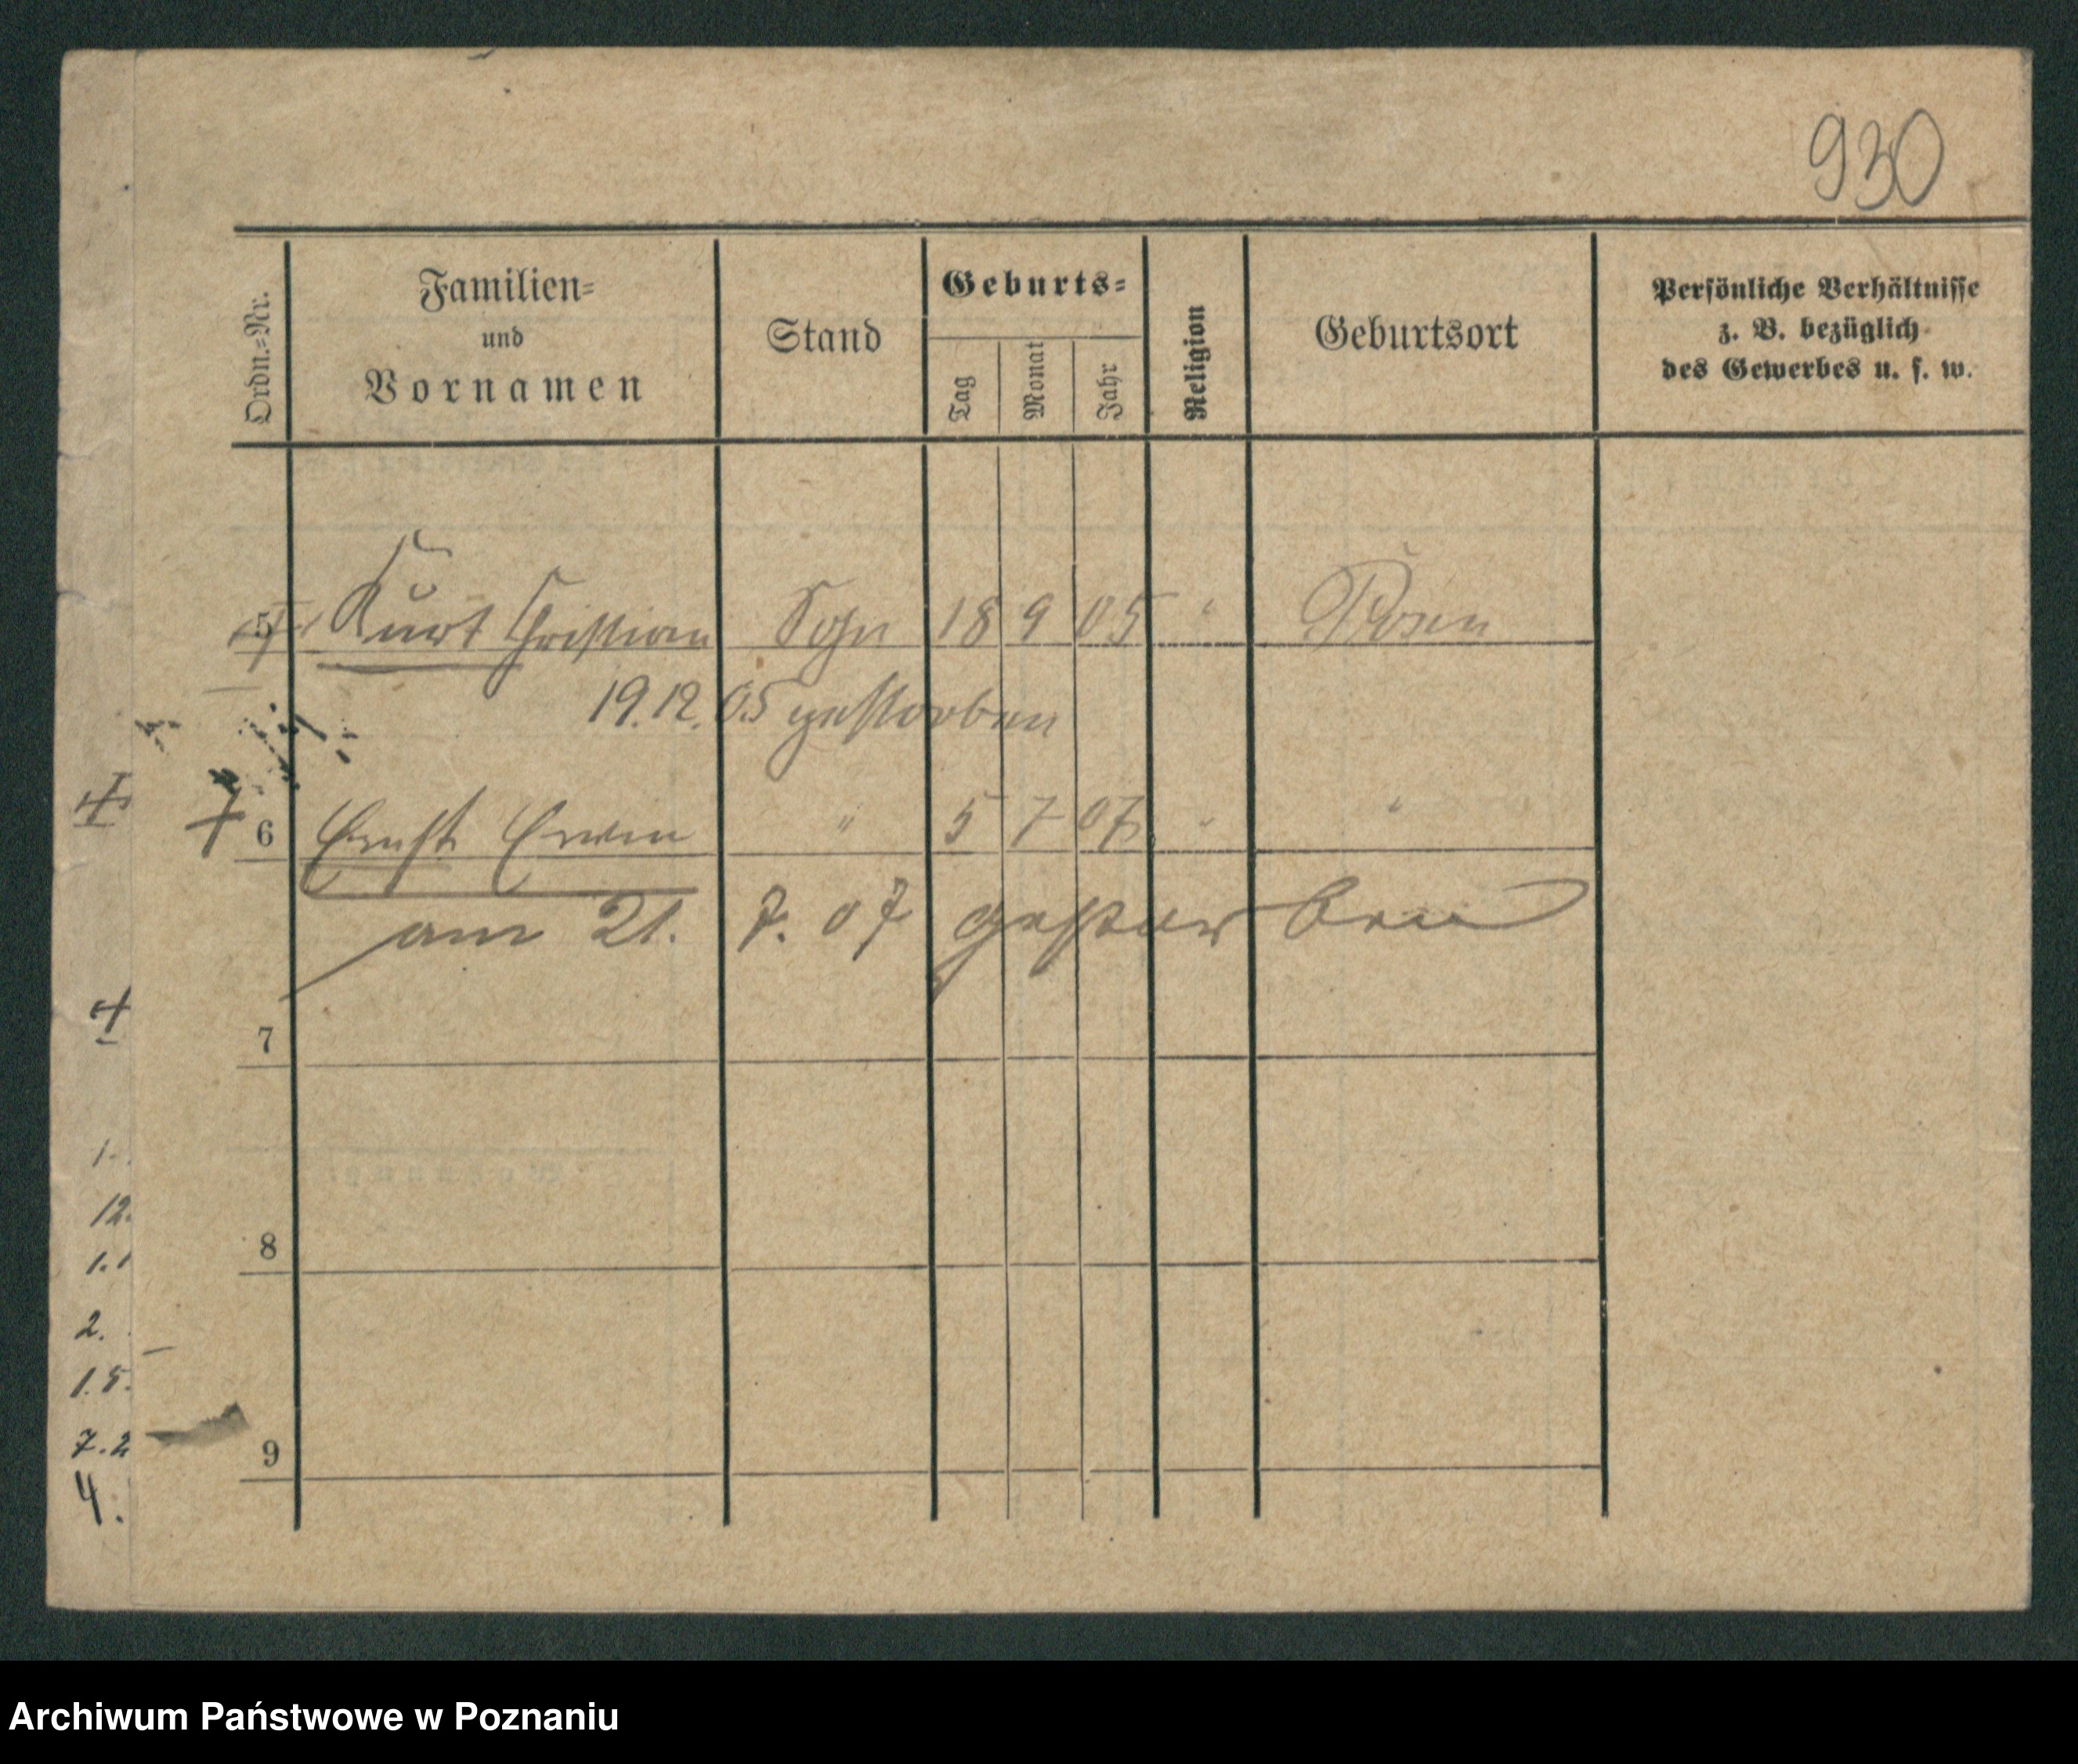 930
Ordn.-Nr.
Familien-
und
Vornamen
Stand
Geburts-
Tag
Monat
Jahr
Religion
Geburtsort
Persönliche Verhältnisse
z. B. bezüglich
des Gewerbes u. s. w.
5 Kurt Christian Sohn 18 9 05 " Posen
19.12.05 gestorben
+ 6 Ernst Erwin " 5 7 07 " "
am 21. 7. 07 gestorben
7
8
9
1.
12.
1.1
2.
1.5.
7.2
4.
Archiwum Państwowe w Poznaniu